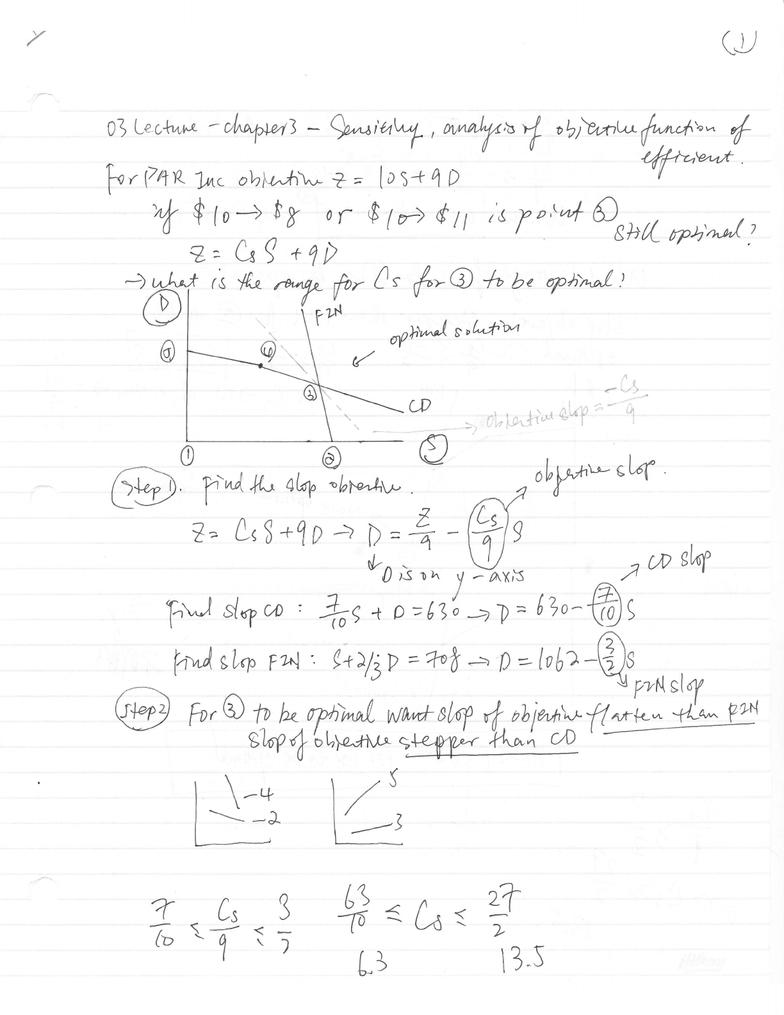 (1)
03 Lecture - chapter3 - Sensitivity, analysis of objective function of
efficient.
For PAR Inc objective Z = 10S+9D
if $10→$8 or $10→$11 is point ③
still optimal?
Z = CsS + 9D
→ what is the range for Cs for ③ to be optimal?
D
FIN
optimal solution
⑤
④
③
CD
→ objective slop = -Cs/9
S
①
②
Step 1. Find the slop objective.
objective slop.
Z = CsS + 9D → D = Z/9 - Cs/9 S
D is on y-axis
CD slop
Find slop CD : 7/10 S + D = 630 → D = 630 - 7/10 S
Find slop FIN : S + 2/3 D = 708 → D = 1062 - 3/2 S
FIN slop
Step 2 For ③ to be optimal want slop of objective flatten than FIN
slop of objective stepper than CD
-4
-2
5
3
7/10 ≤ Cs/9 ≤ 3/2
63/10 ≤ Cs ≤ 27/2
6.3 13.5